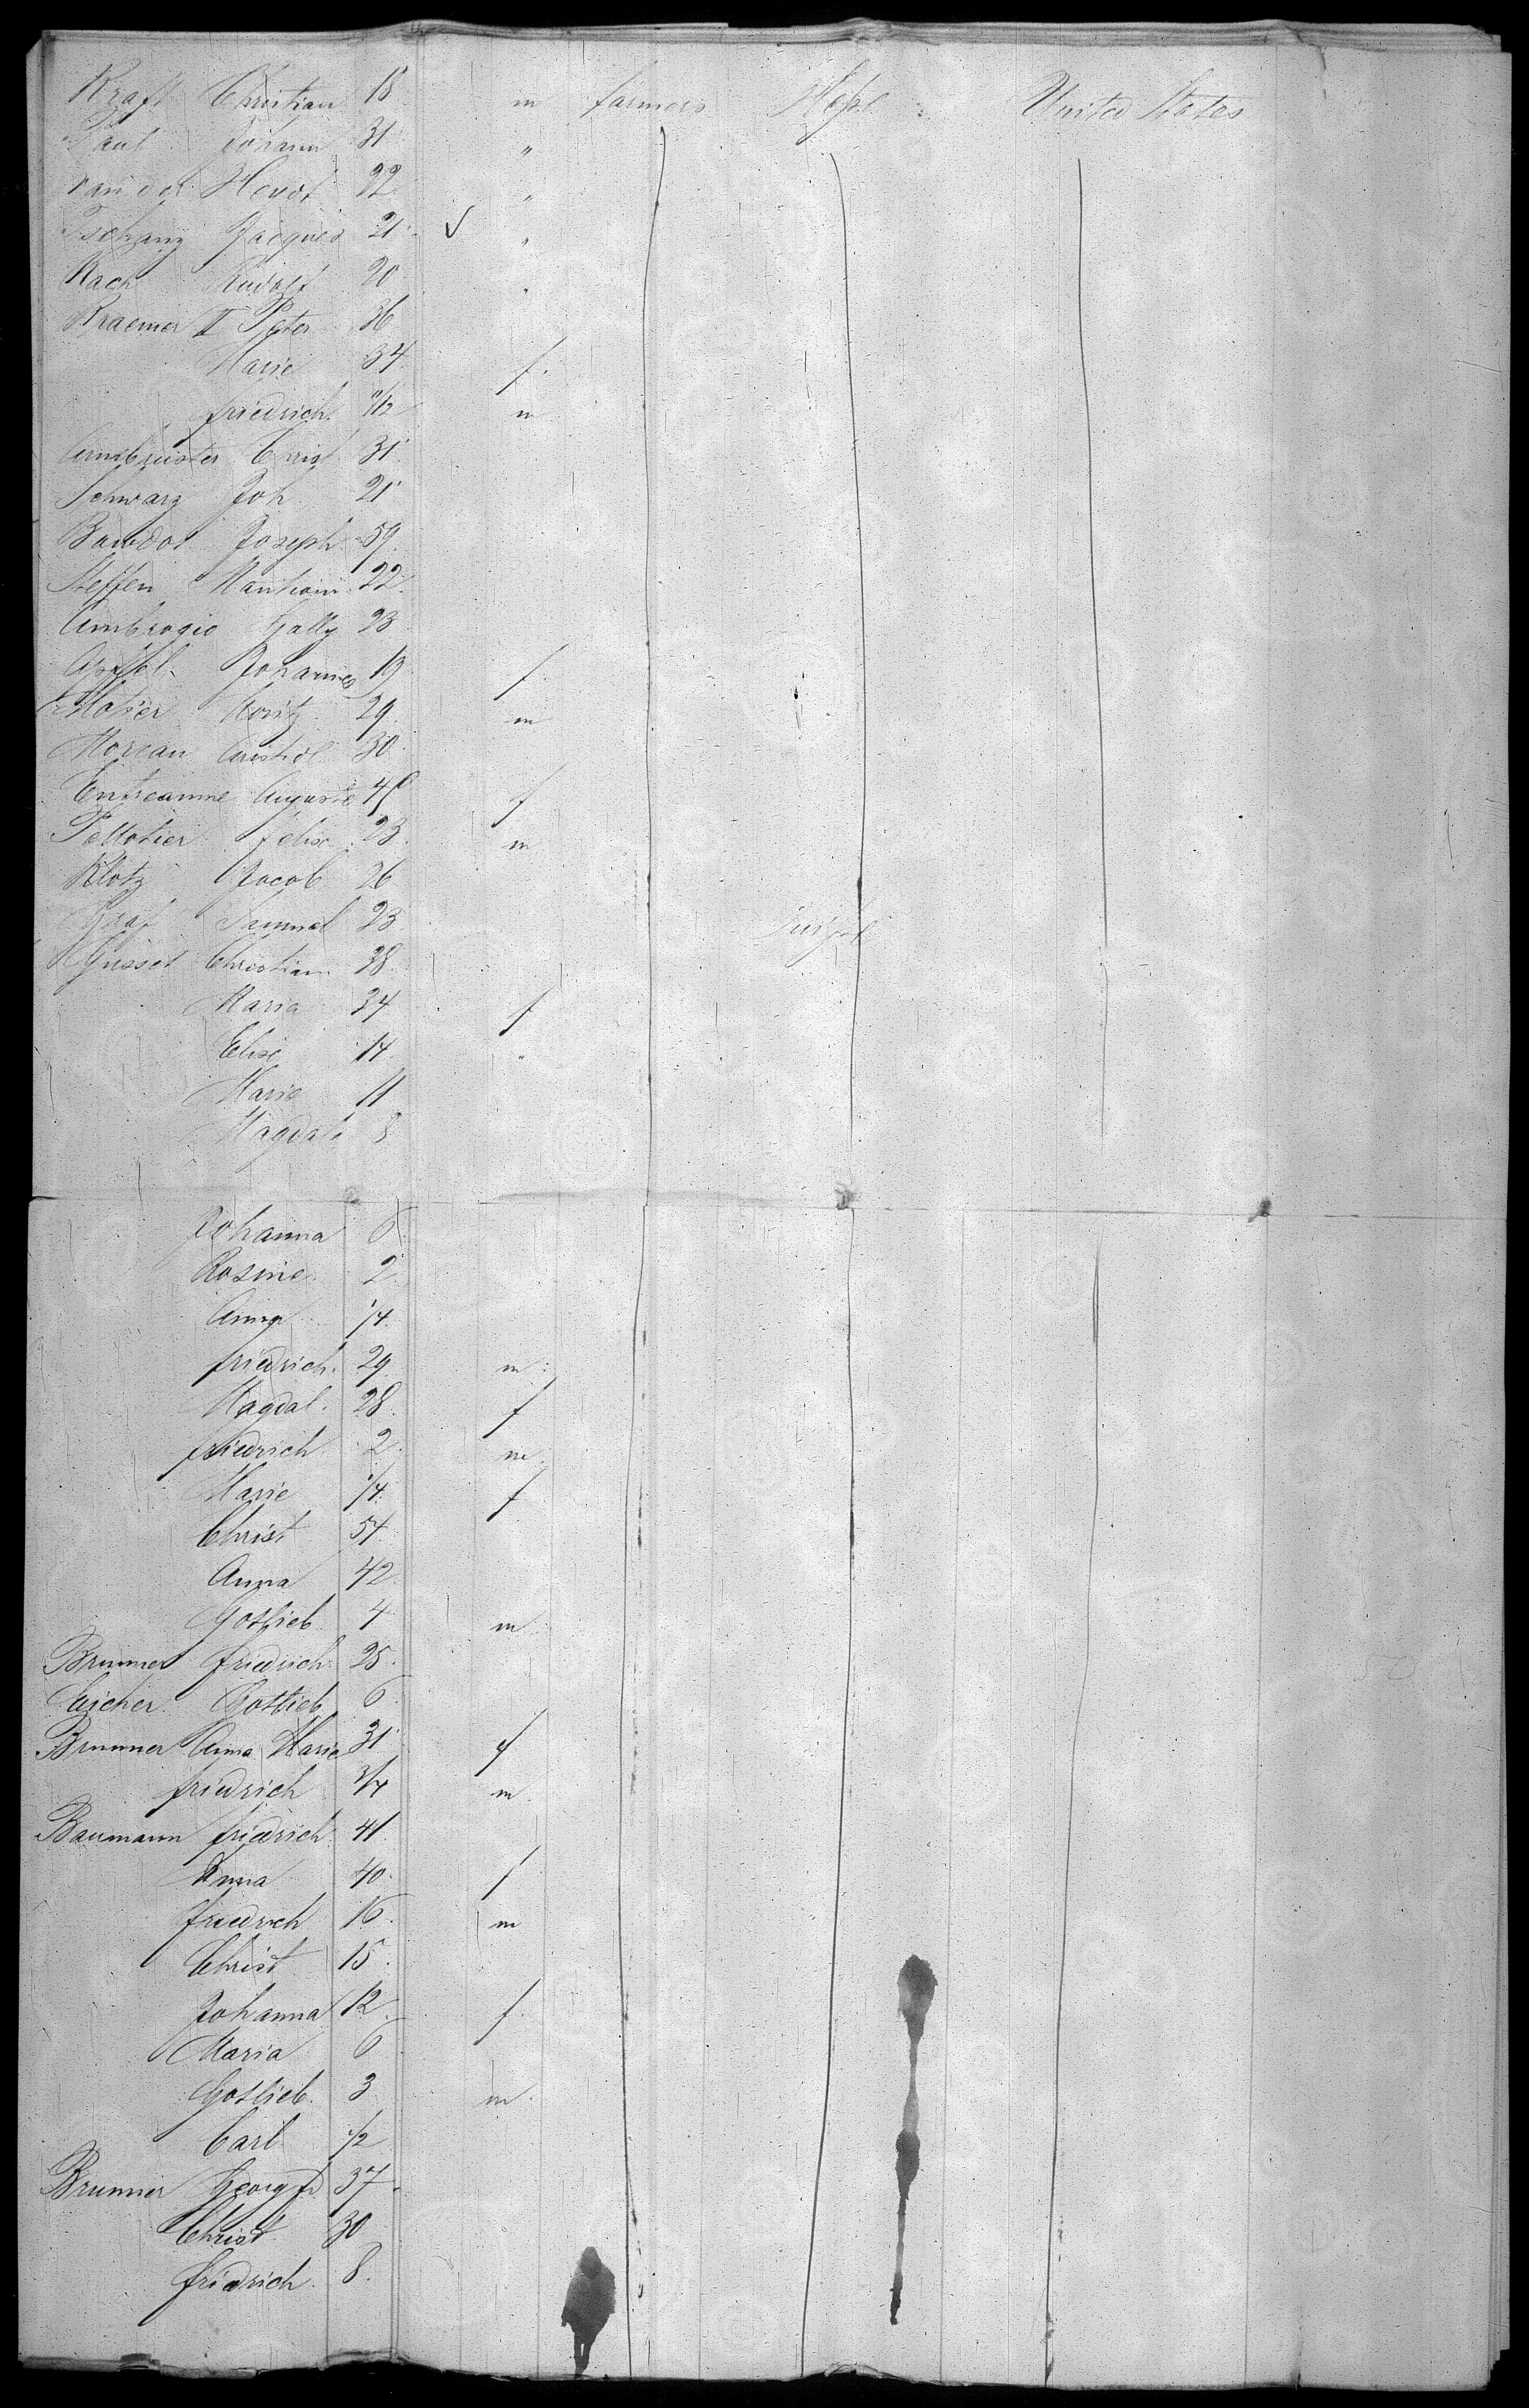 Kraft Christian 18 m farmers United States
Paul Johann 31 "
van der Heudt 22 "
Tschanz Jacques 21 ✓ "
Rach Rudolf 20 "
Kraemer II Peter 36
Marie 34 f.
friedrich. 11/12 m
Armbruster Christ 31
Schwarz Joh 21
Baudot Joseph 59
Steffen 22
Ambrogio Gally 23
Johannes 19 f
Moritz 29 m
Moreau Aristide 30
Entreamme Auguste 48 f
Pellotier felix 23 m
Klotz Jacob 26
Graf Samuel 23
Gusset Christian 38
Maria 34 f
Elise 14 "
Marie 11
Magdale 8
Johanna 6
Rosine 2
Anna 1/4
friedrich. 29 m
Magdal. 28 f
friedrich 2 m
Marie 1/4 f
Christ 54
Anna 42
Gottlieb 4 m
Brunner friedrich 25
Eicher Gottlieb 6
Brunner Anna Marie 31 f
friedrich 3/4 m
Baumann friedrich 41
Anna 40 f
friedrich 16 m
Christ 15
Johanna 12 f
Maria 6
Gottlieb 3 m
Carl 1/2
Brunner Georg fr 37
Christ 30
friedrich 8